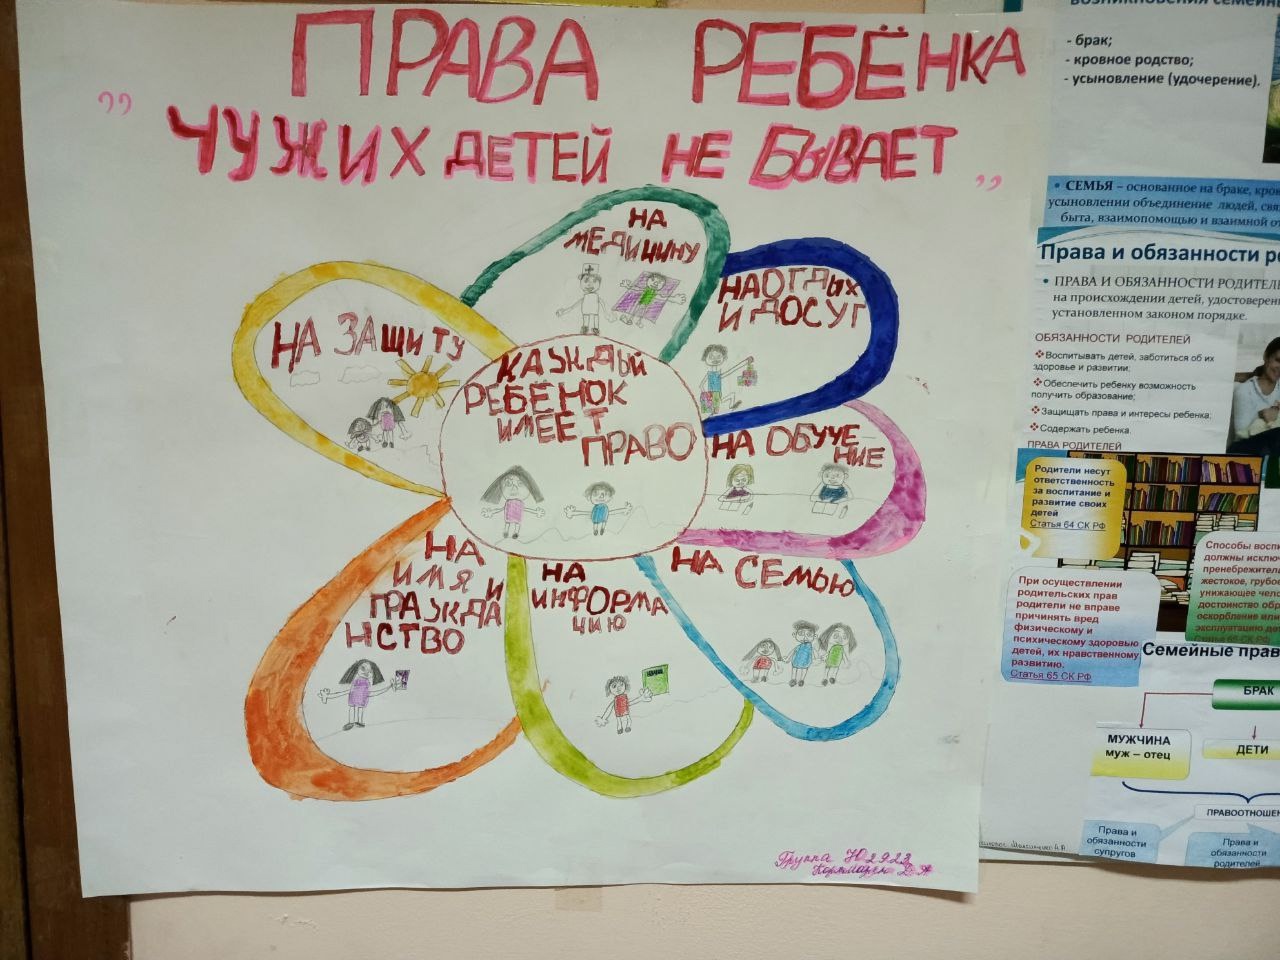 ПРАВА РЕБЁНКА
„ ЧУЖИХ ДЕТЕЙ НЕ БЫВАЕТ „
НА
МЕДИЦИНУ
НА ОТДЫХ
И ДОСУГ
НА ЗАЩИТУ
КАЖДЫЙ
РЕБЕНОК
ИМЕЕТ
ПРАВО
НА ОБУЧЕ
НИЕ
НА
ИМЯ И
ГРАЖДА
НСТВО
НА
ИНФОРМА
ЦИЮ
НА СЕМЬЮ
Группа Ю2923
возникновения семейн
- брак;
- кровное родство;
- усыновление (удочерение).
• СЕМЬЯ – основанное на браке, кров
усыновлении объединение людей, свя
быта, взаимопомощью и взаимной от
Права и обязанности ро
• ПРАВА И ОБЯЗАННОСТИ РОДИТЕЛЕ
на происхождении детей, удостоверен
установленном законом порядке.
ОБЯЗАННОСТИ РОДИТЕЛЕЙ
Воспитывать детей, заботиться об их
здоровье и развитии;
Обеспечить ребенку возможность
получить образование;
Защищать права и интересы ребенка;
Содержать ребенка.
ПРАВА РОДИТЕЛЕЙ
Родители несут
ответственность
за воспитание и
развитие своих
детей
Статья 64 СК РФ
При осуществлении
родительских прав
родители не вправе
причинять вред
физическому и
психическому здоровью
детей, их нравственному
развитию.
Статья 65 СК РФ
Способы восп
должны исключ
пренебрежитель
жестокое, грубое
унижающее чело
достоинство обра
оскорбление или
эксплуатацию де
Статья 65 СК РФ
Семейные прав
БРАК
МУЖЧИНА
муж – отец
ДЕТИ
ПРАВООТНОШЕН
Права и
обязанности
супругов
Права и
обязанности
родителей